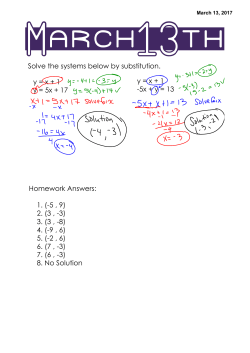 March 13, 2017
MARCH13TH
Solve the systems below by substitution.
y = x + 1
y = 5x + 17
y = -4+1 = -3 = y
x+1 = 5x+17 solve for x
-x -x
1 = 4x+17
-17 -17
-16 = 4x
x = -4
Solution
(-4, -3)
y = x + 1
-5x + y = 13
-5x + x+1 = 13 Solve for x
-4x+1 = 13
-1 -1
-4x = 12
x = -3
Solution
Homework Answers:
1. (-5 , 9)
2. (3 , -3)
3. (3 , -8)
4. (-9 , 6)
5. (-2 , 6)
6. (7 , -3)
7. (6 , -3)
8. No Solution